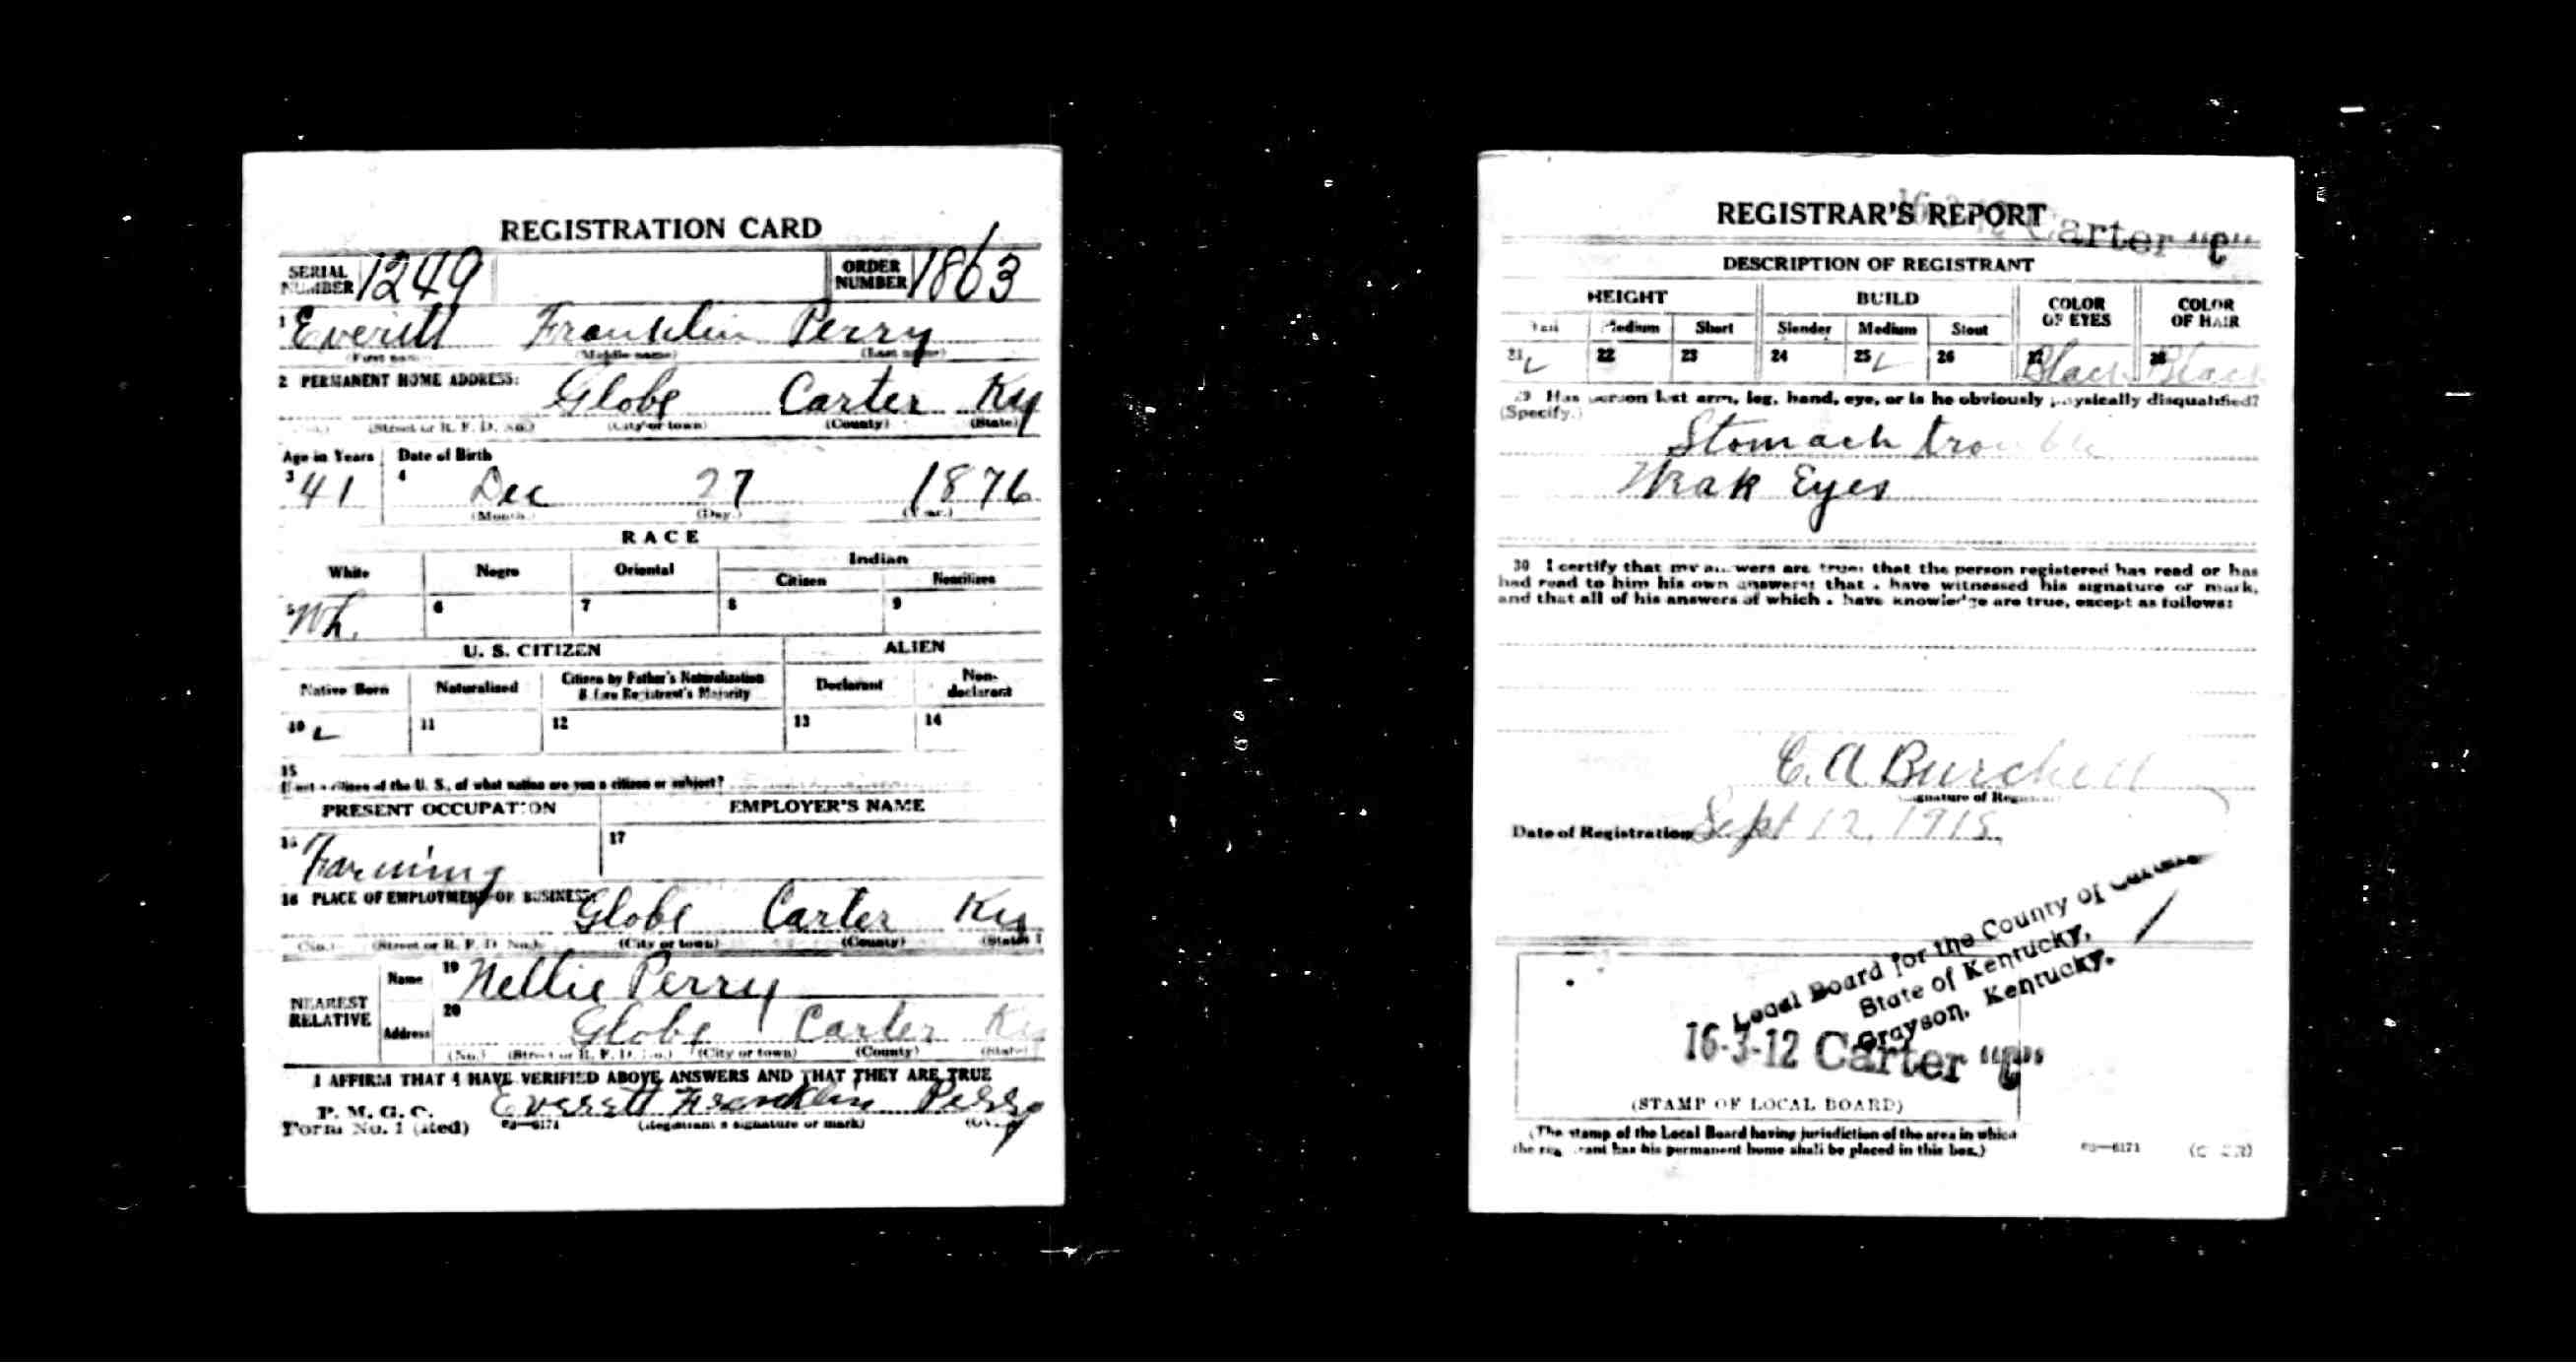 REGISTRATION CARD
SERIAL NUMBER 1249 ORDER NUMBER 1863
1 Everitt Franklin Perry
(First name) (Middle name) (Last name)
2 PERMANENT HOME ADDRESS:
Globe Carter Ky
(No.) (Street or R. F. D. No.) (City or town) (County) (State)
Age in Years Date of Birth
3 41 4 Dec 27 1876
(Month.) (Day.) (Year.)
RACE
White Negro Oriental Indian
Citizen Noncitizen
5 Wh. 6 7 8 9
U. S. CITIZEN ALIEN
Native Born Naturalized Citizen by Father's Naturalization Before Registrant's Majority Declarant Non-declarant
10 11 12 13 14
15
If not a citizen of the U. S., of what nation are you a citizen or subject?
PRESENT OCCUPATION EMPLOYER'S NAME
16 Farming 17
18 PLACE OF EMPLOYMENT OR BUSINESS:
Globe Carter Ky
(No.) (Street or R. F. D. No.) (City or town) (County) (State)
NEAREST RELATIVE
Name 19 Nellie Perry
Address 20 Globe Carter Ky
(No.) (Street or R. F. D. No.) (City or town) (County) (State)
I AFFIRM THAT I HAVE VERIFIED ABOVE ANSWERS AND THAT THEY ARE TRUE
P. M. G. O.
Form No. 1 (Red) 03—6171 Everett Franklin Perry
(Registrant's signature or mark) (OVER)
REGISTRAR'S REPORT
16-3-12 Carter "C"
DESCRIPTION OF REGISTRANT
HEIGHT BUILD COLOR OF EYES COLOR OF HAIR
Tall Medium Short Slender Medium Stout
21 22 23 24 25 26 27 Black 28 Black
29 Has person lost arm, leg, hand, eye, or is he obviously physically disqualified?
(Specify.)
Stomach trouble
Weak Eyes
30 I certify that my answers are true; that the person registered has read or has
had read to him his own answers; that I have witnessed his signature or mark,
and that all of his answers of which I have knowledge are true, except as follows:
E. A. Burchett
(Signature of Registrar)
Date of Registration Sept 12, 1918
Local Board for the County of Carter
State of Kentucky,
Grayson, Kentucky.
16-3-12 Carter "C"
(STAMP OF LOCAL BOARD)
(The stamp of the Local Board having jurisdiction of the area in which
the registrant has his permanent home shall be placed in this box.)
03—6171 (OVER)